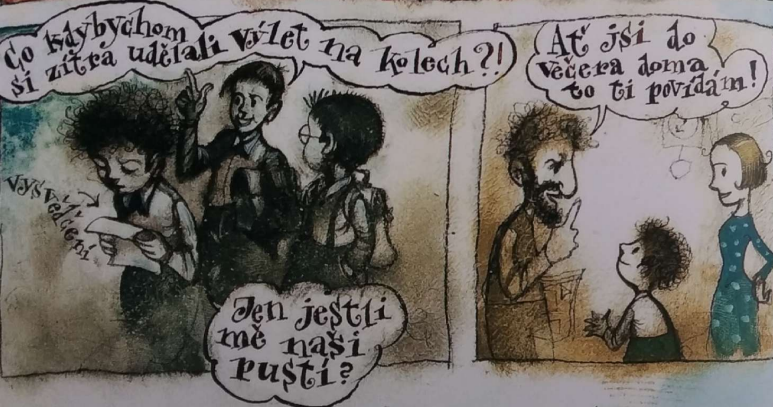 Co kdybychom
si zítra udělali výlet na kolech?!
vysvědčení
Jen jestli
mě naši
pustí?
Ať jsi do
večera doma
to ti povídám!